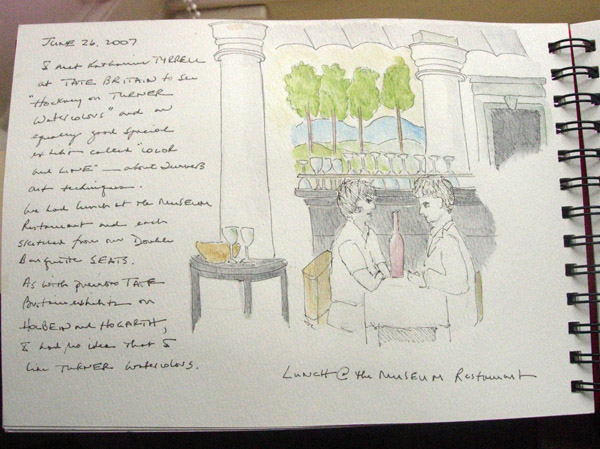 JUNE 26, 2007
I met Katherine TYRRELL
at TATE BRITAIN to see
"Hockney on TURNER
Watercolours" and an
equally good special
exhibit called "COLOR
and LINE" — about Turner's
art techniques.
We had lunch at the MUSEUM
Restaurant and each
sketched from our Double
Banquette SEATS.
As with previous TATE
Britain exhibits on
HOLBEIN and HOGARTH,
I had no idea that I
like TURNER Watercolours.
LUNCH @ the MUSEUM Restaurant